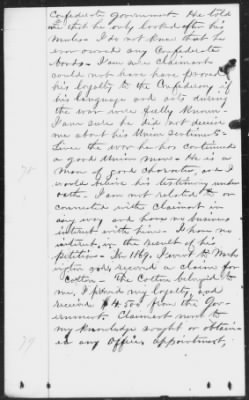 Confederate Government. He told
me that he only looked after his
mules. I do not know that he
ever owned any Confederate
bonds - I am sure Claimant
could not have have proved
his loyalty to the Confederacy if
his language and acts during
the war were fully known.
I am sure he did not deceive
me about his Union sentiments -
Since the war he has continued
a good Union man. He is a
man of good character, and I
would believe his testimony under
78
oath. I am not related to or
connected with Claimant in
any way and have no business
interest with him. I have no
interest in the result of his
petition. In 1869, I went to Wash
ington and received a claim for
Cotton - The Cotton belonged to
me, I proved my loyalty, and
received $4,500 from the Gov-
ernment. Claimant never to
my knowledge sought or obtain-
79
ed any Office, appointment,